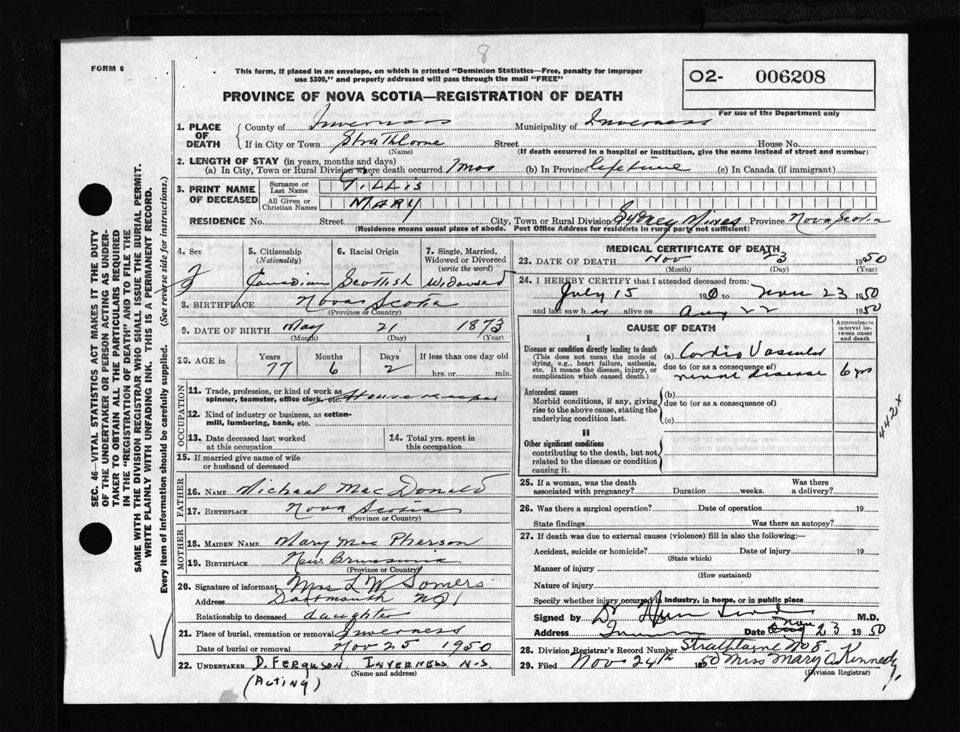 8
FORM 6
This form, if placed in an envelope, on which is printed "Dominion Statistics—Free, penalty for improper
use $300," and properly addressed will pass through the mail "FREE"
O2- 006208
For use of the Department only
PROVINCE OF NOVA SCOTIA—REGISTRATION OF DEATH
SEC. 46—VITAL STATISTICS ACT MAKES IT THE DUTY
OF THE UNDERTAKER OR PERSON ACTING AS UNDER-
TAKER TO OBTAIN ALL THE PARTICULARS REQUIRED
IN THE "REGISTRATION OF DEATH" AND TO FILE THE
SAME WITH THE DIVISION REGISTRAR WHO SHALL ISSUE THE BURIAL PERMIT.
WRITE PLAINLY WITH UNFADING INK. THIS IS A PERMANENT RECORD.
Every item of information should be carefully supplied. (See reverse side for instructions.)
1. PLACE OF DEATH County of Inverness Municipality of Inverness
If in City or Town Strathlorne Street House No.
(Name) (If death occurred in a hospital or institution, give the name instead of street and number)
2. LENGTH OF STAY (in years, months and days)
(a) In City, Town or Rural Division where death occurred 1 mos (b) In Province lifetime (c) In Canada (if immigrant)
3. PRINT NAME OF DECEASED Surname or Last Name GILLIS
All Given or Christian Names MARY
RESIDENCE No. Street City, Town or Rural Division Sydney Mines Province Nova Scotia
(Residence means usual place of abode. Post Office Address for residents in rural parts not sufficient)
4. Sex 5. Citizenship (Nationality) 6. Racial Origin 7. Single, Married, Widowed or Divorced (write the word)
F Canadian Scottish Widowed
8. BIRTHPLACE Nova Scotia
(Province or Country)
9. DATE OF BIRTH May 21 1873
(Month) (Day) (Year)
10. AGE in Years Months Days If less than one day old
77 6 2 hrs. or min.
OCCUPATION
11. Trade, profession, or kind of work as
spinner, teamster, office clerk, etc. Housekeeper
12. Kind of industry or business, as cotton-
mill, lumbering, bank, etc.
13. Date deceased last worked at this occupation 14. Total yrs. spent in this occupation
15. If married give name of wife
or husband of deceased
FATHER
16. NAME Michael MacDonald
17. BIRTHPLACE Nova Scotia
(Province or Country)
MOTHER
18. MAIDEN NAME Mary MacPherson
19. BIRTHPLACE New
(Province or Country)
20. Signature of informant Mrs L W Somers
Address Dartmouth
Relationship to deceased daughter
21. Place of burial, cremation or removal Inverness
Date of burial or removal Nov 25 1950
22. UNDERTAKER D. FERGUSON INVERNESS N.S.
(Name and address)
(ACTING)
MEDICAL CERTIFICATE OF DEATH
23. DATE OF DEATH Nov 23 1950
(Month) (Day) (Year)
24. I HEREBY CERTIFY that I attended deceased from:
July 15 to Nov 23 1950
and last saw her alive on Aug 22 1950
CAUSE OF DEATH
Approximate interval between onset and death
Disease or condition directly leading to death
(This does not mean the mode of
dying, e.g., heart failure, asthenia,
etc. It means the disease, injury, or
complication which caused death.)
(a) Cardio Vascular
due to (or as a consequence of)
renal disease 6 yrs
Antecedent causes
Morbid conditions, if any, giving
rise to the above cause, stating the
underlying condition last.
(b)
due to (or as a consequence of)
(c)
442x
II
Other significant conditions
contributing to the death, but not
related to the disease or condition
causing it.
25. If a woman, was the death
associated with pregnancy? Duration weeks. Was there a delivery?
26. Was there a surgical operation? Date of operation 19
State findings Was there an autopsy?
27. If death was due to external causes (violence) fill in also the following:—
Accident, suicide or homicide? Date of injury 19
(State which)
Manner of injury
(How sustained)
Nature of injury
Specify whether injury occurred in industry, in home, or in public place
Signed by Dr M.D.
Address Date Nov 23 1950
28. Division Registrar's Record Number No 8
29. Filed Nov 24th 1950 Miss Mary C Kennedy
(Division Registrar)